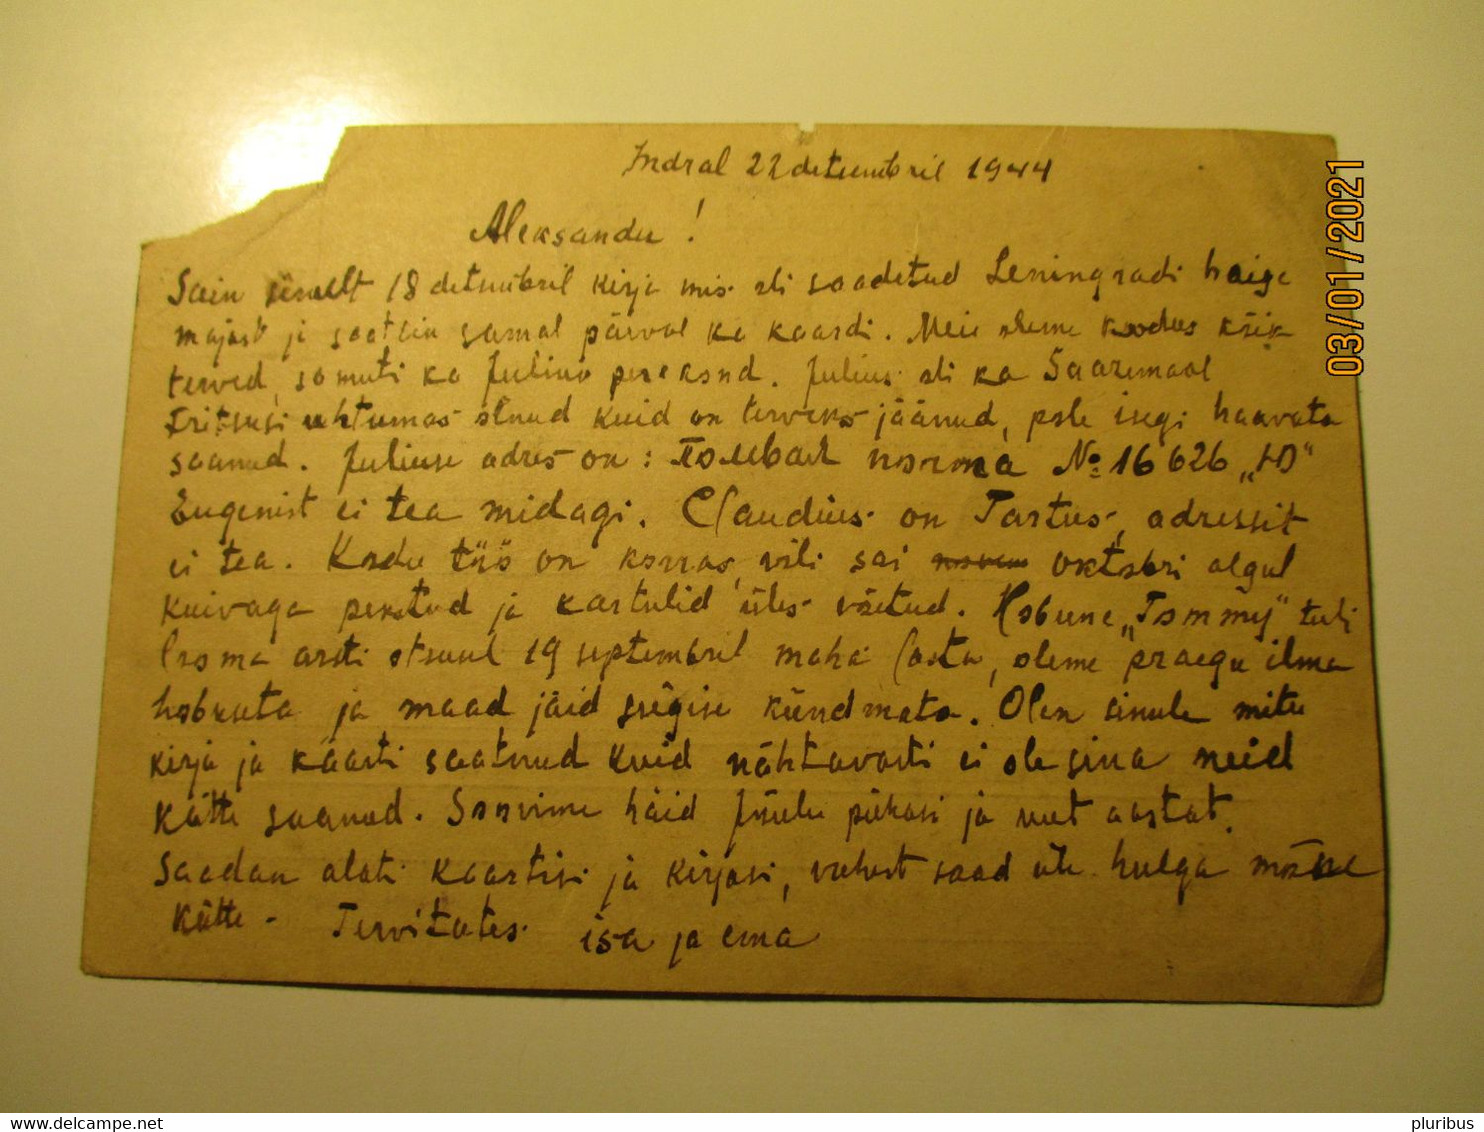 Indral 22 detsembril 1944
Aleksander!
Sain 18 detsembril kirja mis oli saadetud Leningradi haige
majast ja saatsin samal päeval ka kaardi. Meie oleme kodus kõik
terved, samuti ka Juliuse perekond. Julius oli ka Saaremaal
olnud kuid on terveks jäänud, pole isegi haavata
saanud. Juliuse adres on: Полевая почта № 16626 „Ю"
Eugenist ei tea midagi. Claudius on Tartus, adressit
ei tea. Kodu töö on korras, vili sai oktobri algul
kuivaga pekstud ja kartulid üles võetud. Hobune „Tommy" tuli
looma arsti otsusel 19 septembril maha lasta, oleme praegu ilma
hobuseta ja maad jäid sügise kündmata. Olen sinule mitu
kirja ja kaarti saatnud kuid nähtavasti ei ole sina neid
kätte saanud. Soovime häid Jõulu pühasi ja uut aastat.
Saadan alati kaartisi ja kirjasi, vahest saad üte hulga mõne
kätte - Tervitates isa ja ema
03/01/2021
pluribus